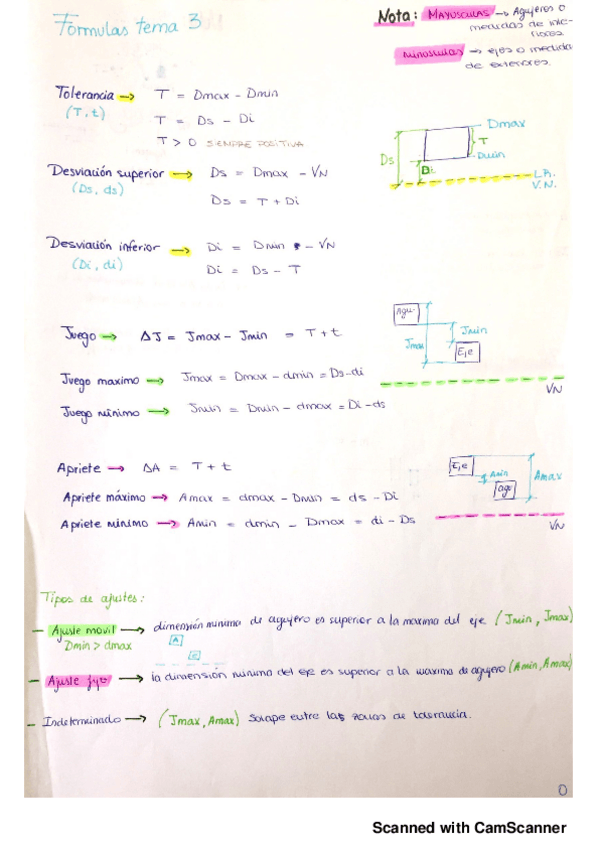 Fórmulas tema 3
Nota: MAYUSCULAS → Agujeros o
medidas de inte-
riores.
minusculas → ejes o medida
de exteriores.
Tolerancia → T = Dmax - Dmin
(T, t)
T = Ds - Di
T > 0 SIEMPRE POSITIVA
Dmax
T
Dmin
Ds
Di
L.R.
V.N.
Desviación superior → Ds = Dmax - VN
(Ds, ds)
Ds = T + Di
Desviación inferior → Di = Dmin - VN
(Di, di)
Di = Ds - T
Juego → ΔJ = Jmax - Jmin = T + t
Juego maximo → Jmax = Dmax - dmin = Ds - di
Juego mínimo → Jmin = Dmin - dmax = Di - ds
Agu.
Jmin
Jmax
Eje
VN
Apriete → ΔA = T + t
Apriete máximo → Amax = dmax - Dmin = ds - Di
Apriete mínimo → Amin = dmin - Dmax = di - Ds
Eje
Amin
Amax
agu
VN
Tipos de ajustes:
- Ajuste movil → dimensión minima de agujero es superior a la maxima del eje (Jmin, Jmax)
Dmin > dmax
A
- Ajuste fijo → la dimensión minima del eje es superior a la maxima de agujero (Amin, Amax)
- Indeterminado → (Jmax, Amax) Solape entre las zonas de tolerancia.
Scanned with CamScanner